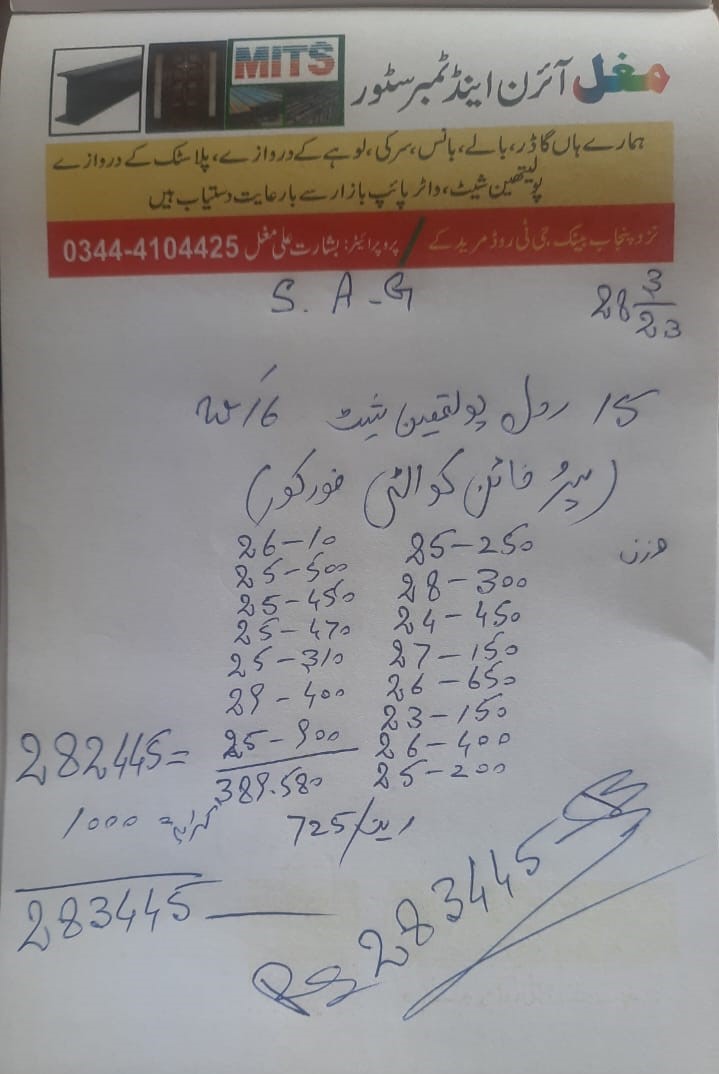 MITS
مغل آئرن اینڈ ٹمبر سٹور
ہمارے ہاں گاڈر، بالے، بانس، سرکی، لوہے کے دروازے، پلاسٹک کے دروازے
پولیتھین شیٹ، واٹر پائپ بازار سے بارعایت دستیاب ہیں
نزد پنجاب بینک جی ٹی روڈ مریدکے / پروپرائیٹر: بشارت علی مغل 0344-4104425
S. A-G
28 3/23
15 رول پولتھین شیٹ 16/
(سپر فائن کوالٹی فورکور)
وزن
25-250 26-10
28-300 25-500
24-450 25-450
27-150 25-470
26-650 25-310
23-150 29-400
26-400 25-900
25-200 389.580
282445=
ریٹ 725/
کرایہ 1000
283445
Rs 283445